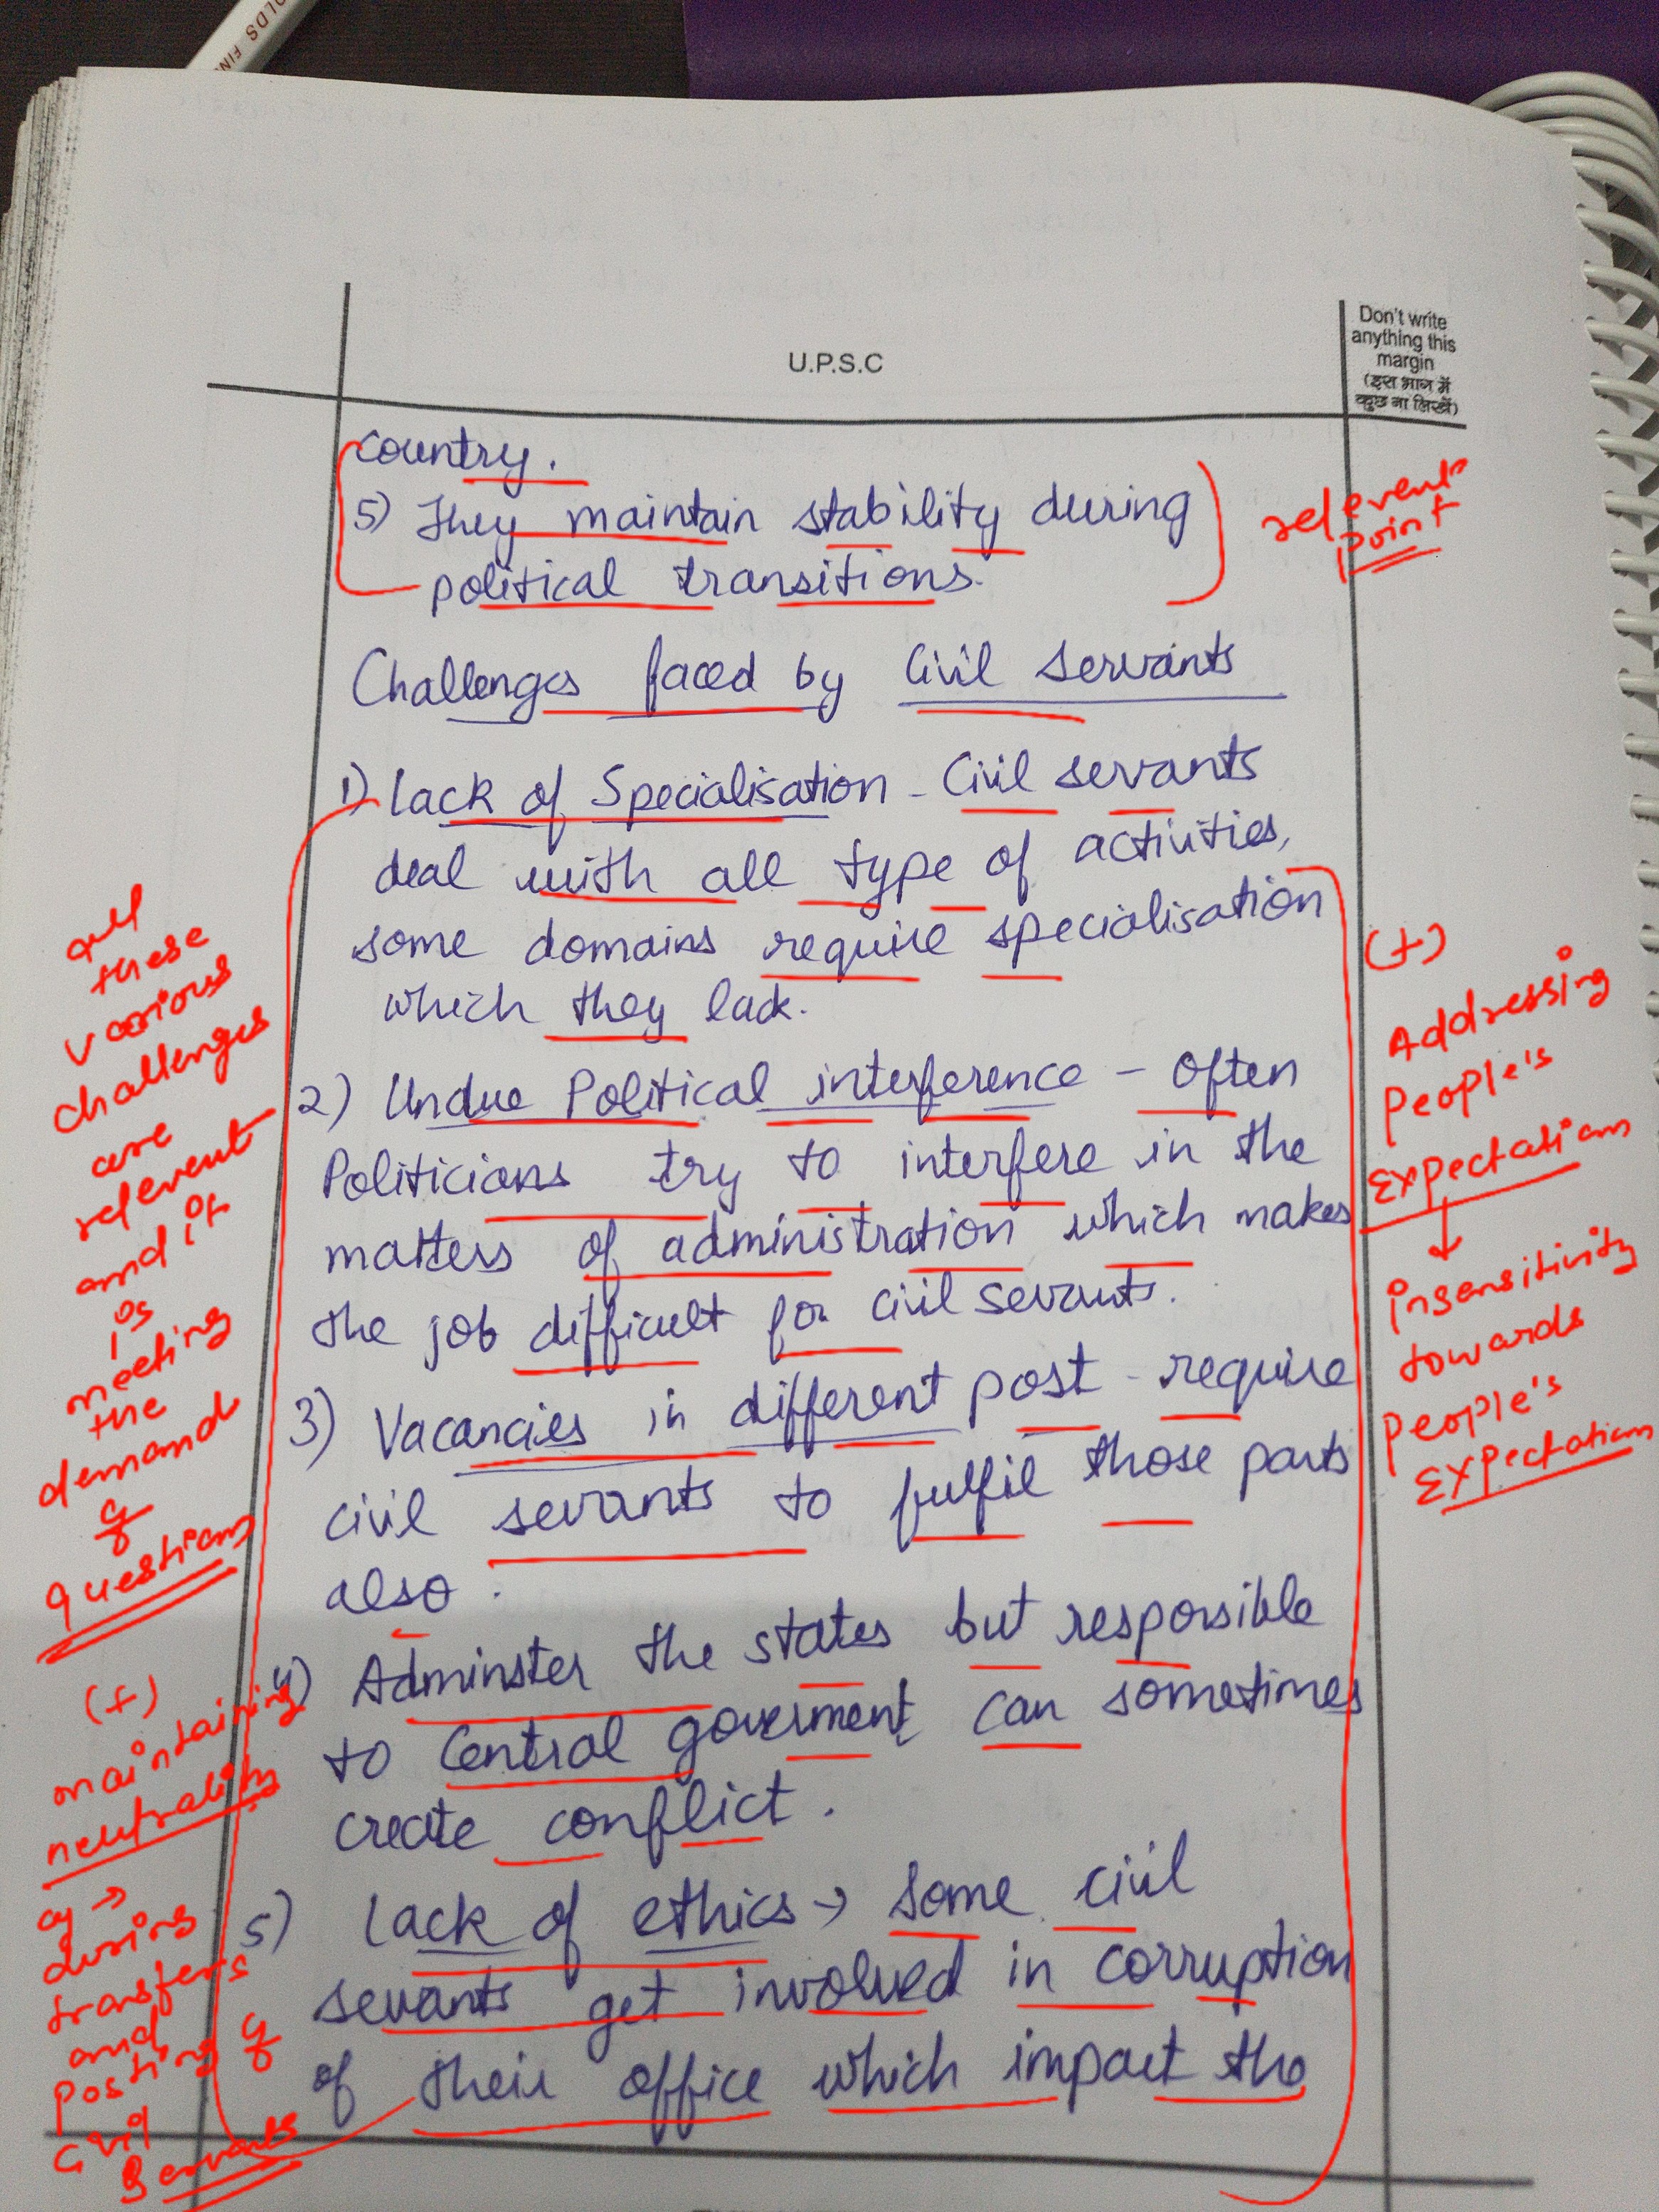 OLDS FIN
U.P.S.C
Don't write
anything this
margin
(इस भाग में
कुछ ना लिखें)
country.
5) They maintain stability during
political transitions.
relevent
point
Challenges faced by Civil servants
1) Lack of Specialisation - Civil servants
deal with all type of activities,
some domains require specialisation
which they lack.
2) Undue Political interference - Often
Politicians try to interfere in the
matters of administration which makes
the job difficult for civil servants.
3) Vacancies in different post - require
civil servants to fulfil those parts
also.
4) Adminster the states but responsible
to Central goverment can sometimes
create conflict.
5) Lack of ethics → Some civil
servants get involved in corruption
of their office which impact the
all
these
various
challenges
are
relevent
and it
is
meeting
the
demand
of
questions
(+)
maintaining
neutrality
eg →
during
transfers
and
posting of
civil
servants
(+)
Addressing
people's
Expectations
↓
insensitivity
towards
people's
Expectations